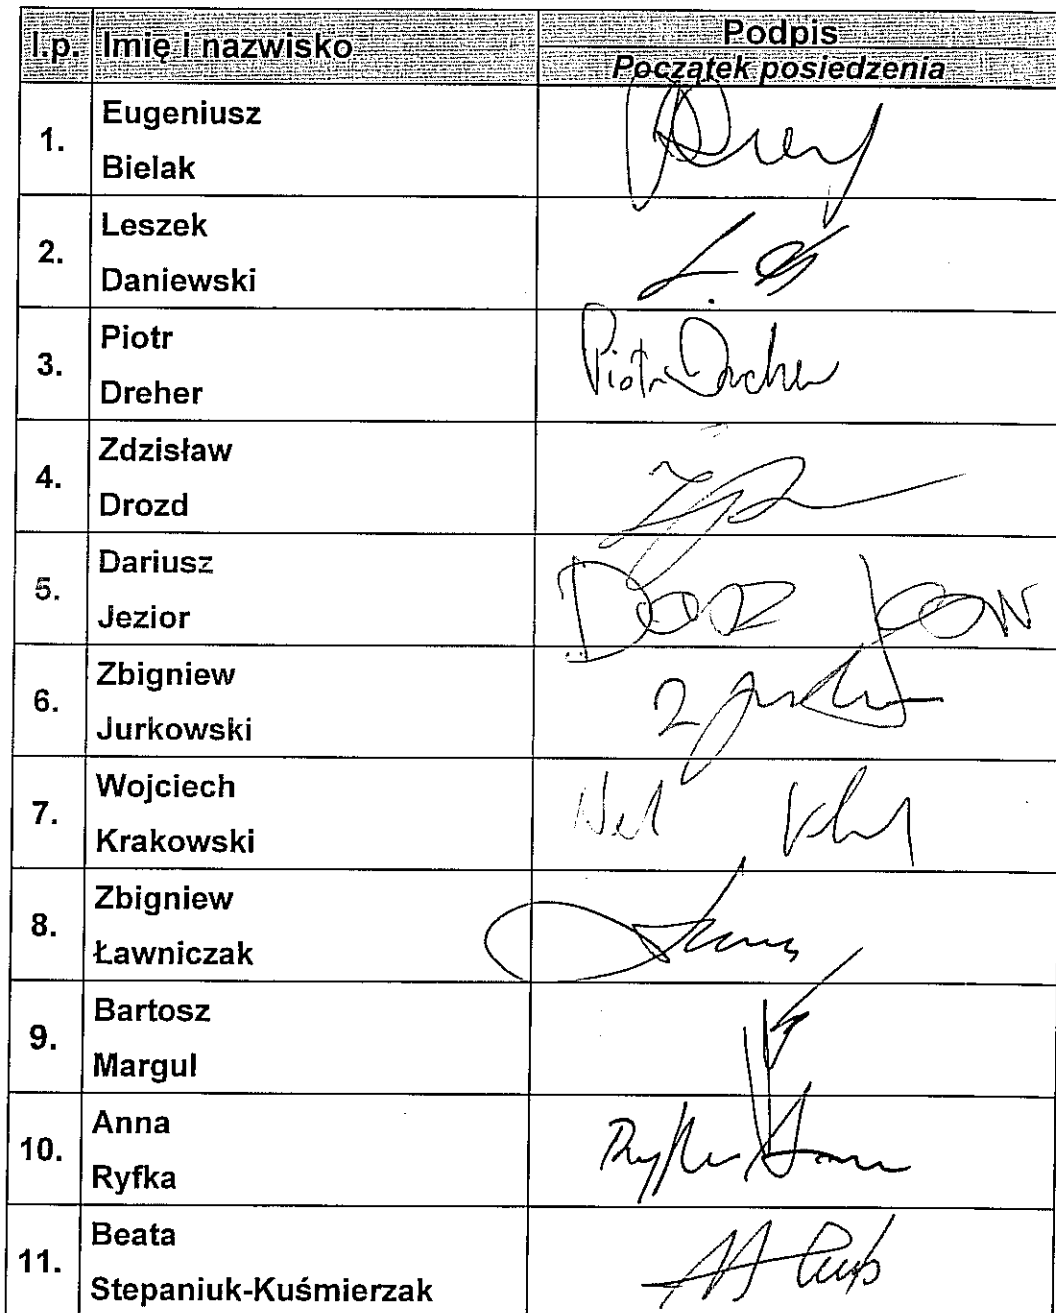 l.p. Imię i nazwisko Podpis
Początek posiedzenia
1. Eugeniusz
Bielak
2. Leszek
Daniewski
3. Piotr
Dreher
Piotr Dreher
4. Zdzisław
Drozd
5. Dariusz
Jezior
6. Zbigniew
Jurkowski
7. Wojciech
Krakowski
8. Zbigniew
Ławniczak
9. Bartosz
Margul
10. Anna
Ryfka
Ryfka Anna
11. Beata
Stepaniuk-Kuśmierzak